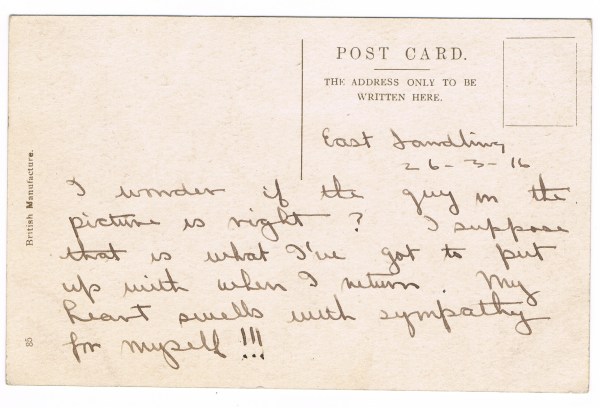 POST CARD.
THE ADDRESS ONLY TO BE
WRITTEN HERE.
East Sandling
26-3-16
I wonder if the guy in the
picture is right ? I suppose
that is what I've got to put
up with when I return. My
heart swells with sympathy
for myself !!!
British Manufacture.
85